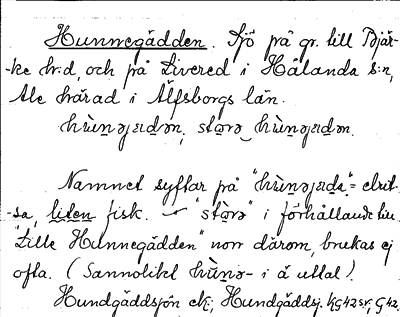 Hunnegädden. Sjö på gr. till Bjär-
-ke h:d, och på Livered i Hålanda s:n,
Ale härad i Älfsborgs län.
hùnəjɛdən, stọrə hùnəjɛdən.
Namnet syftar på "hùnəjɛdə" = elrit-
-sa, liten fisk. – "stọrə" i förhållande till
"Lille Hunnegädden" norr därom, brukas ej
ofta. (Sannolikt hùnə- i ä uttal).
Hundgäddsjön ek; Hundgäddsj. KG42sv, G42.